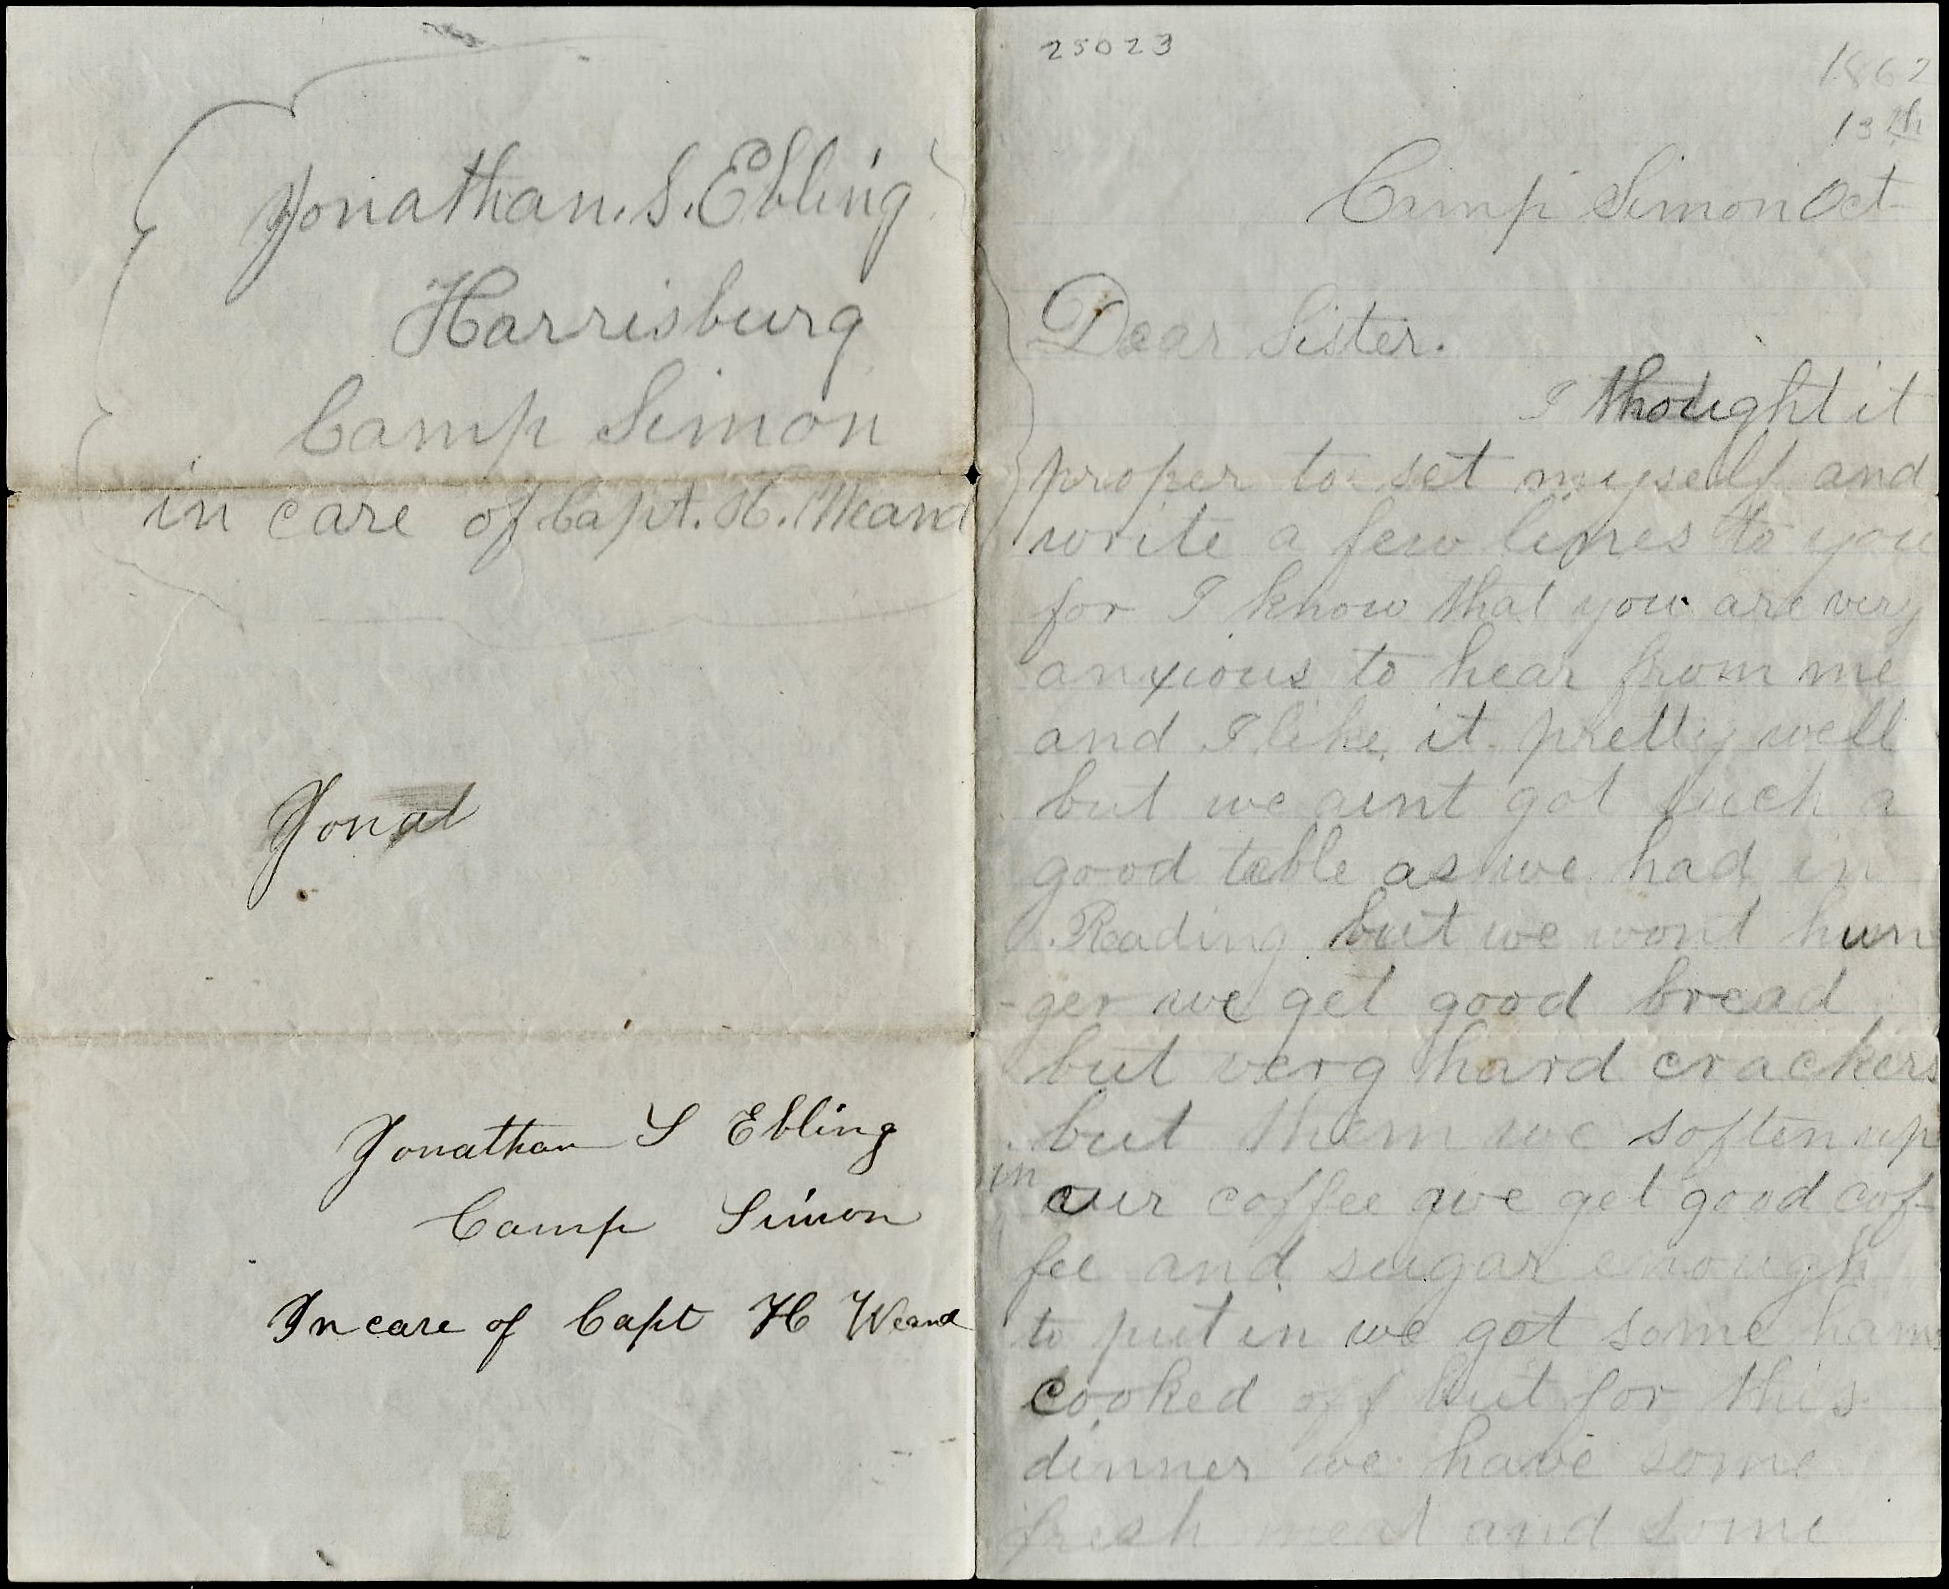 Jonathan. S. Ebling
Harrisburg
Camp Simon
in care of Capt. H. Weand
Jonat
Jonathan S Ebling
Camp Simon
In care of Capt H Weand
25023
1862
13th
Camp Simon Oct
Dear Sister.
I thought it
proper to set myself and
write a few lines to you
for I know that you are very
anxious to hear from me
and I like it pretty well
but we aint got such a
good table as we had in
Reading but we wont hun
-ger we get good bread
but verg hard crackers
but them we soften up
in our coffee we get good cof-
fee and sugar enough
to put in we got some ham
cooked off but for this
dinner we have some
fresh meat and some